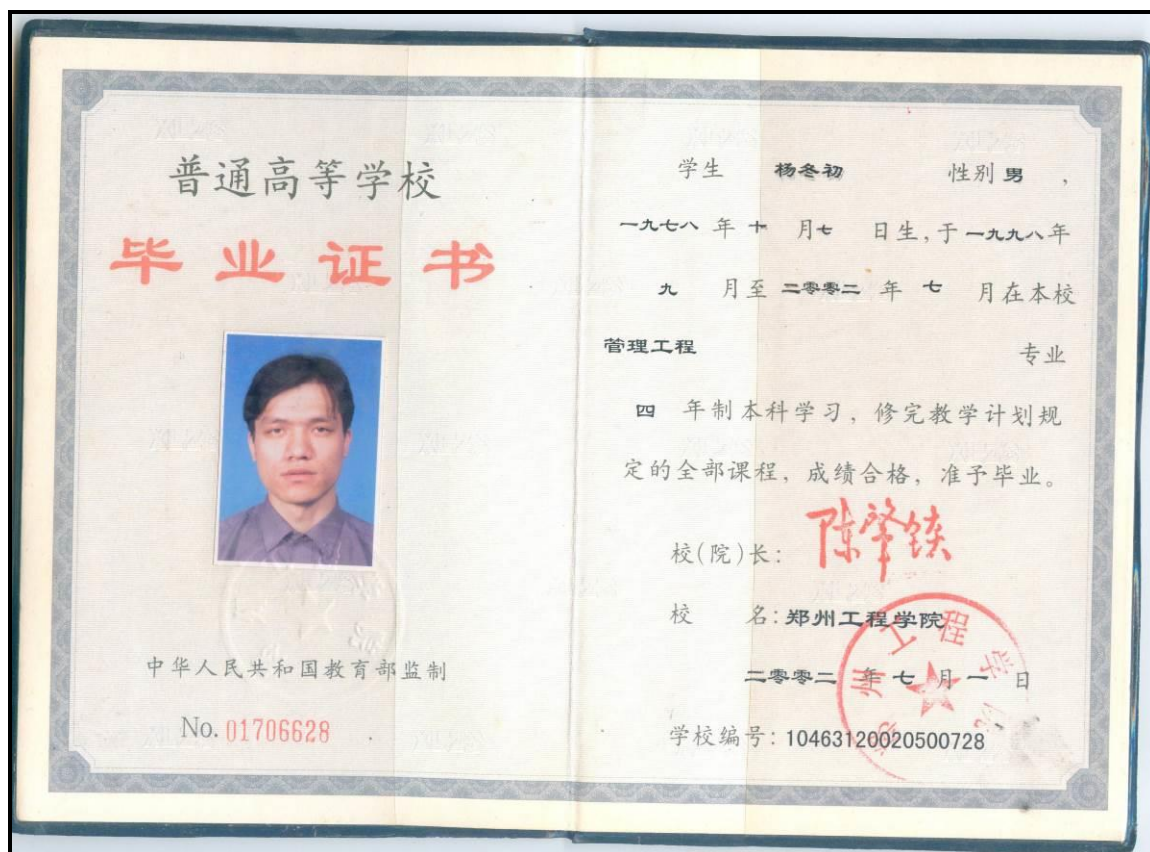 普通高等学校
毕业证书
中华人民共和国教育部监制
No. 01706628
学生 杨冬初 性别 男 ,
一九七八 年 十 月 七 日生, 于 一九九八 年
九 月至 二零零二 年 七 月在本校
管理工程 专业
四 年制本科学习, 修完教学计划规
定的全部课程, 成绩合格, 准予毕业。
校(院)长:
校 名: 郑州工程学院
二零零二 年 七 月 一 日
学校编号: 10463120020500728
郑州工程学院